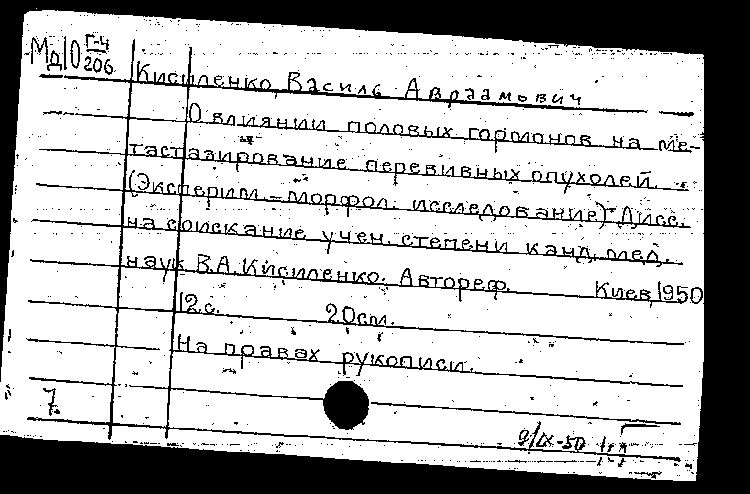 Мд10 Г-4
206
Кисиленко, Василь Авраамович
О влиянии половых гормонов на ме-
тастазирование перевивных опухолей.
(Эксперим.-морфол. исследование) Дисс.
на соискание учен. степени канд. мед.
наук В.А. Кисиленко. Автореф. Киев, 1950
12 с. 20 см.
На правах рукописи.
7.
9/IX-50